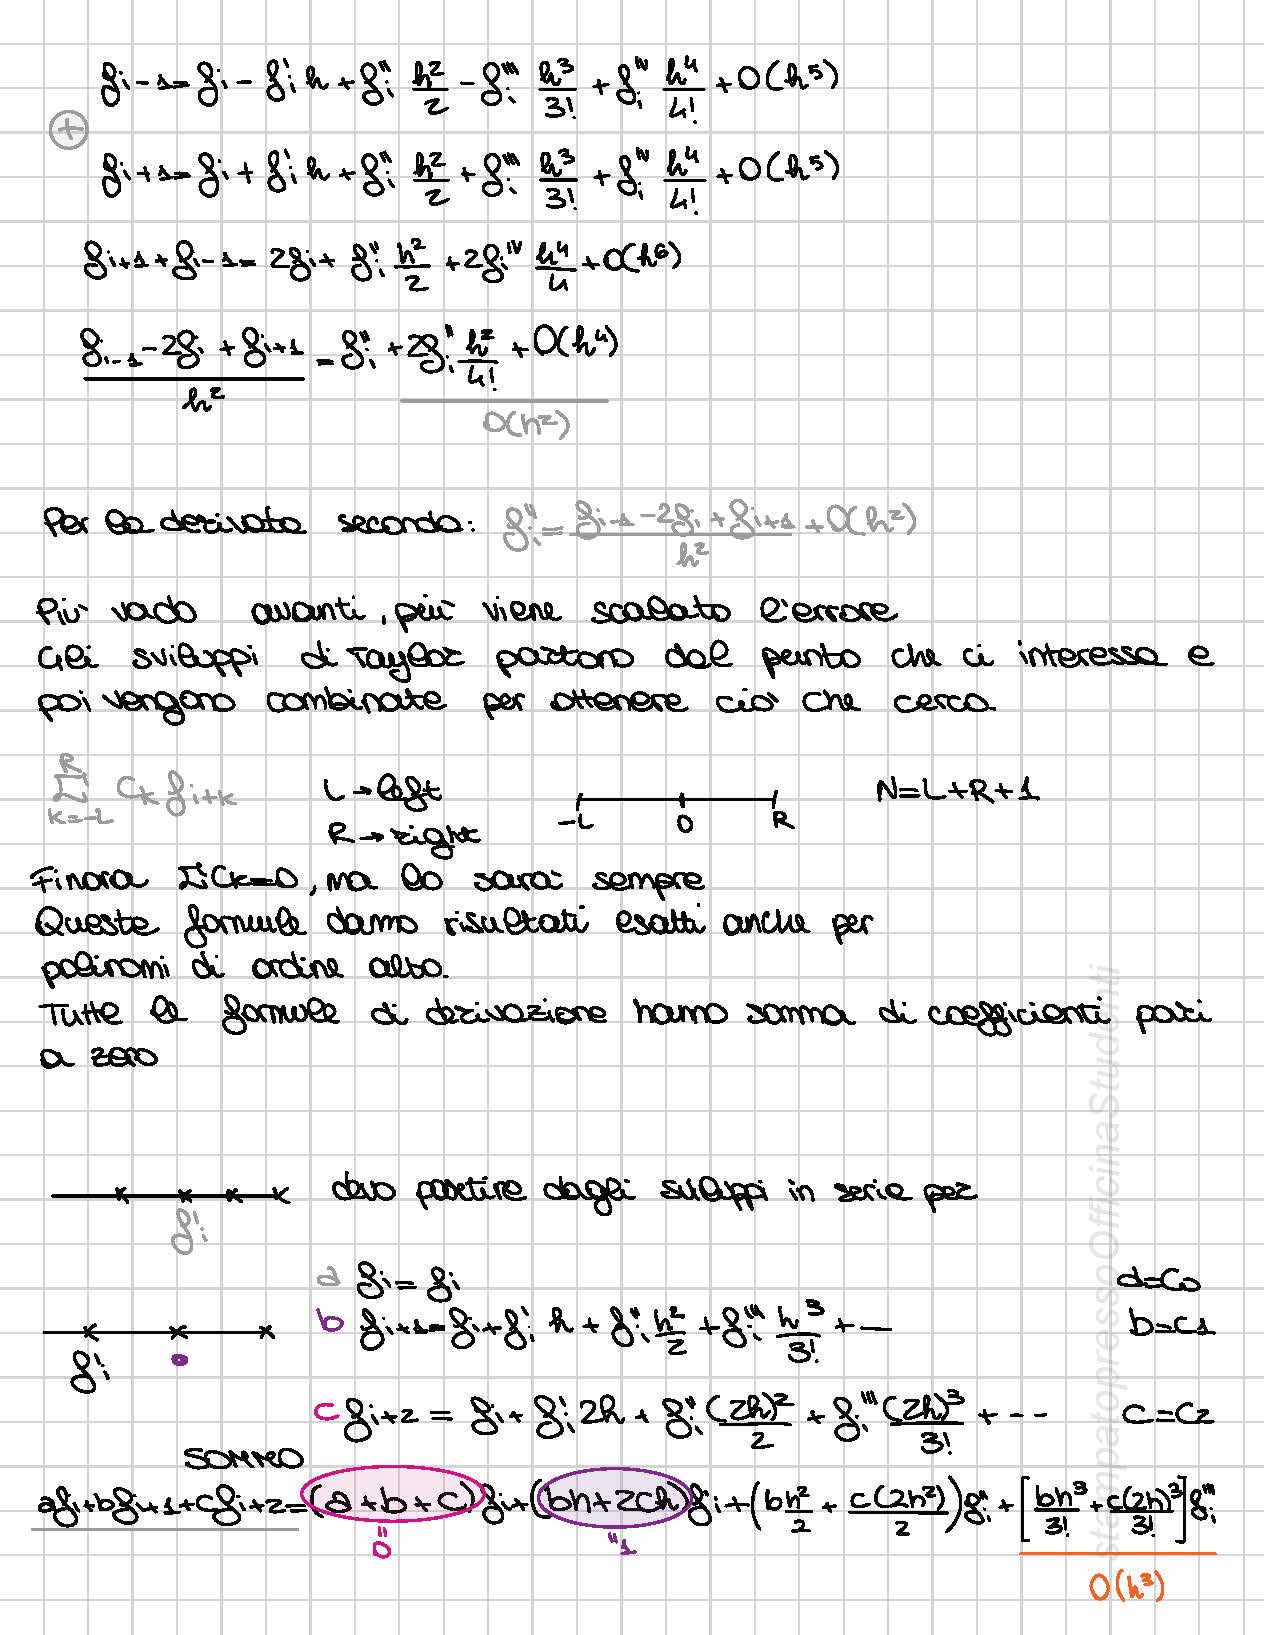 fi-1=fi-f'i h+f''i h²/2-f'''i h³/3!+f^IV i h⁴/4!+O(h⁵)
+
fi+1=fi+f'i h+f''i h²/2+f'''i h³/3!+f^IV i h⁴/4!+O(h⁵)
fi+1+fi-1=2fi+f''i h²/2+2fi^IV h⁴/4+O(h⁶)
(fi-1-2fi+fi+1)/h²=f''i+2f''i h²/4!+O(h⁴)
O(h²)
Per la derivata seconda: f''i=(fi-1-2fi+fi+1)/h²+O(h²)
Più vado avanti, più viene scalato l'errore
Gli sviluppi di Taylor partono dal punto che ci interessa e
poi vengono combinate per ottenere ciò che cerco
R
Σ Ck fi+k
K=-L
L→left
R→right
-L 0 R
N=L+R+1
Finora ΣCk=0, ma lo sarà sempre
Queste formule danno risultati esatti anche per
polinomi di ordine alto.
Tutte le formule di derivazione hanno somma di coefficienti pari
a zero
devo partire dagli sviluppi in serie per
f'i
a fi=fi d=C0
b fi+1=fi+f'i h+f''i h²/2+f'''i h³/3!+... b=C1
f'i
c fi+2=fi+f'i 2h+f''i (2h)²/2+f'''i (2h)³/3!+... C=C2
SOMMO
afi+bfi+1+cfi+2=(a+b+c)fi+(bh+2ch)f'i+(bh²/2+c(2h²)/2)f''i+[bh³/3!+c(2h)³/3!]f'''i
"0 "1
O(h³)
stampatopressoOfficinaStudenti